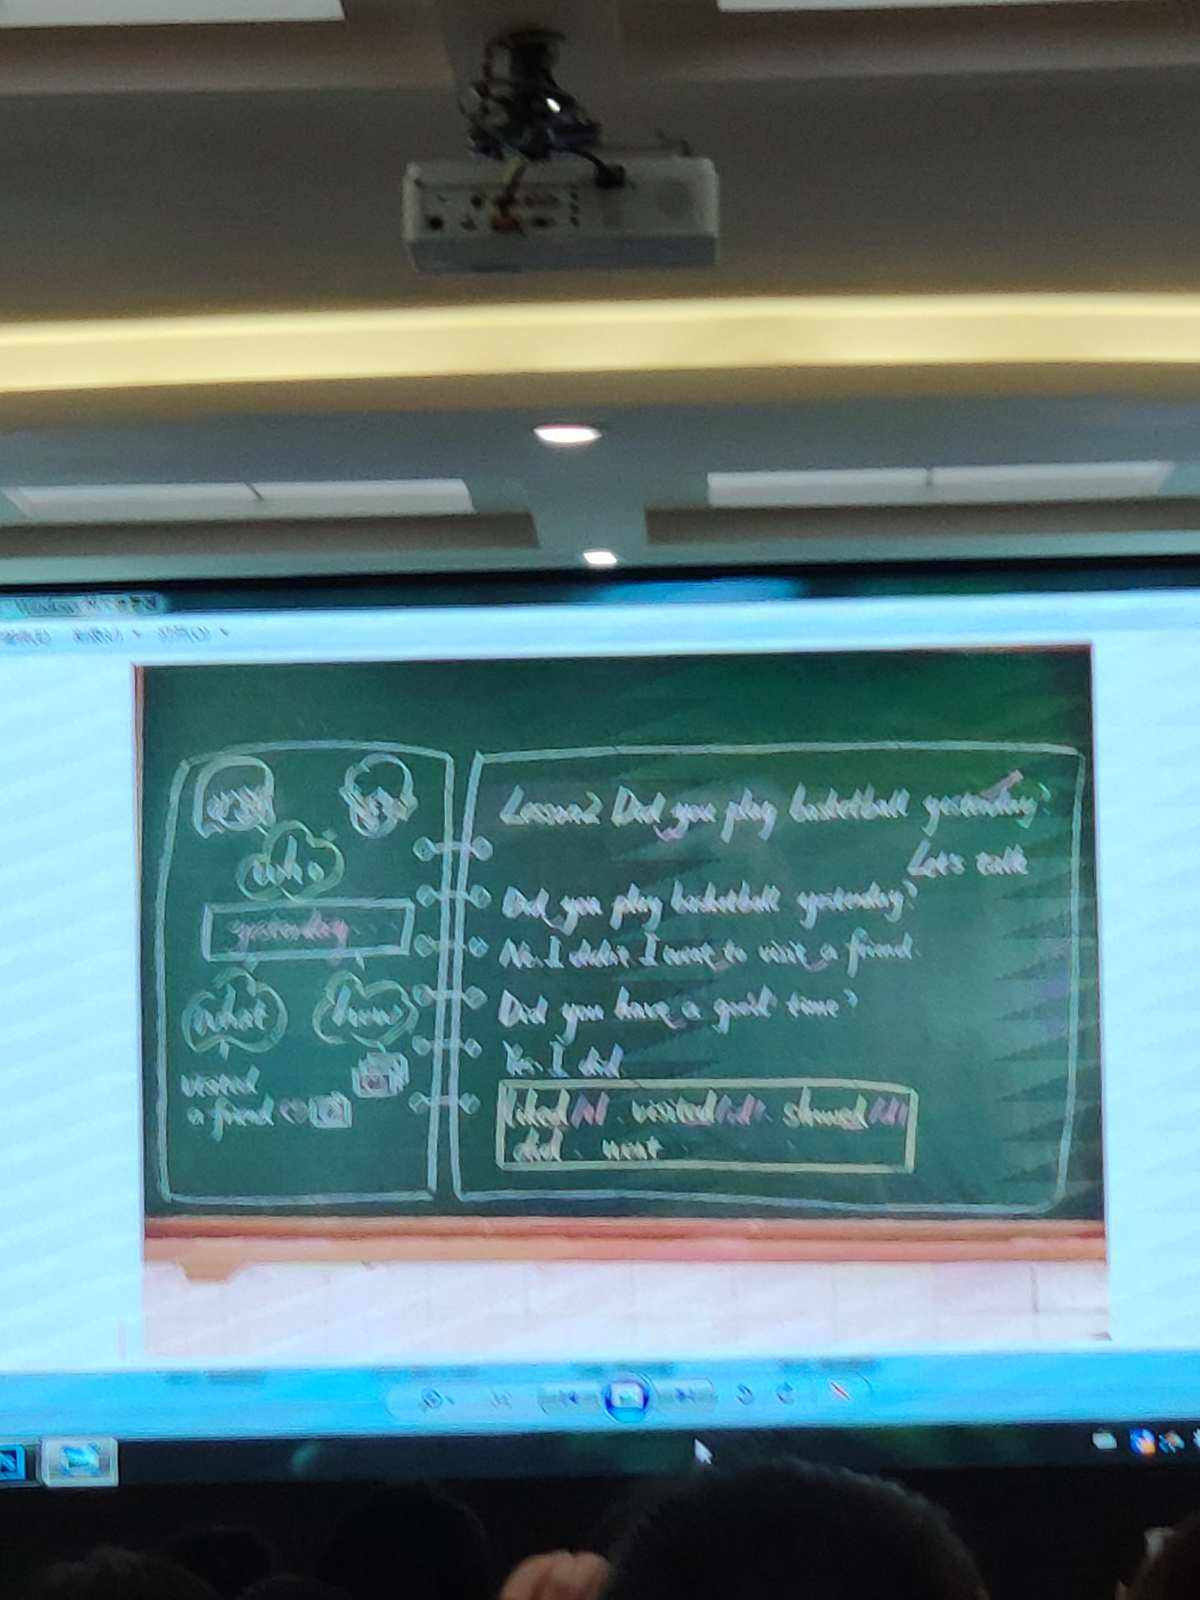 who
yesterday
what
how
visited
a friend
Lesson2 Did you play basketball yesterday?
Let's talk
Did you play basketball yesterday?
No. I didn't. I went to visit a friend.
Did you have a good time?
Yes. I did
liked /t/ visited /id/ showed /d/
did went